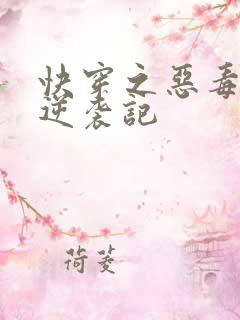 快穿之惡毒
逆袭記
荷菱